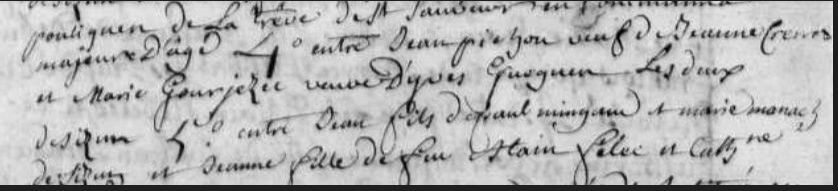 pouliquen de La treve de st Sauveur en
majeure d'age 4° entre Jean pichon veuf de Jeanne
et Marie Gourjezec veuve D'yves Gueguen Les deux
de sizun 5.° entre Jean fils de paul mingam et marie manach
de sizun et Jeanne fille de feu Alain et